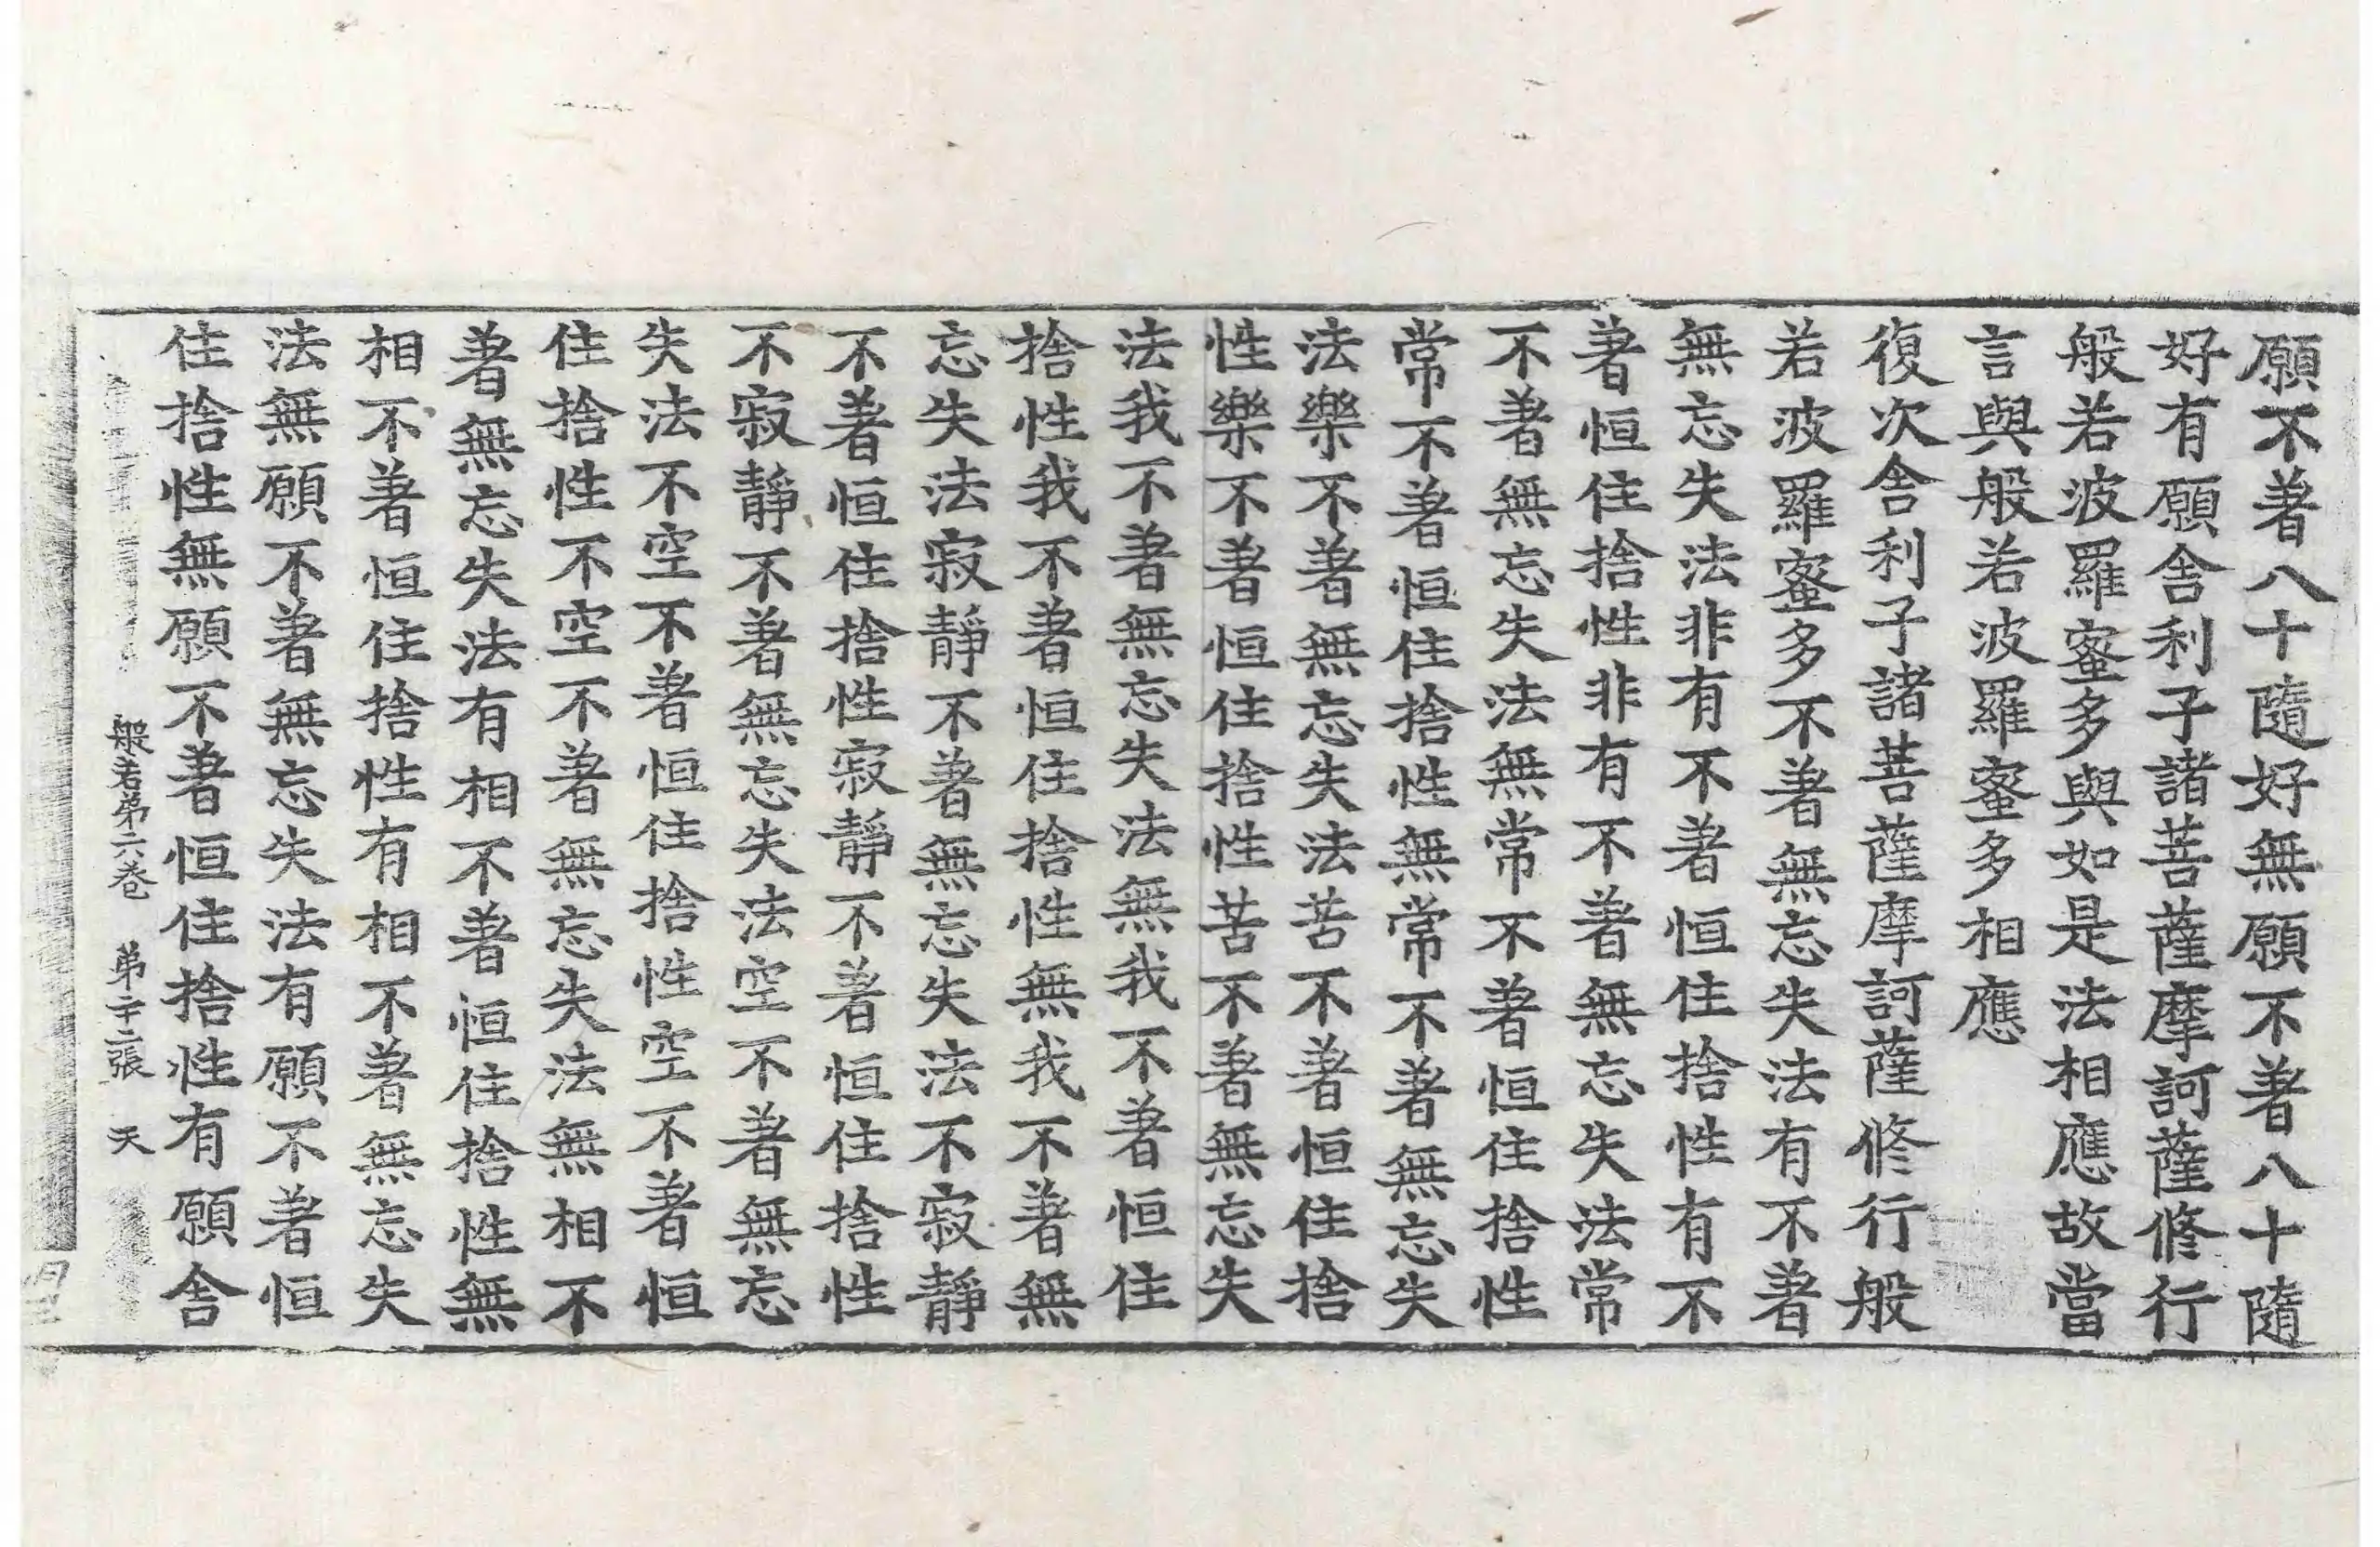 願不著八十隨好無願不著八十隨
好有願舍利子諸菩薩摩訶薩修行
般若波羅蜜多與如是法相應故當
言與般若波羅蜜多相應
復次舍利子諸菩薩摩訶薩修行般
若波羅蜜多不著無忘失法有不著
無忘失法非有不著恒住捨性有不
著恒住捨性非有不著無忘失法常
不著無忘失法無常不著恒住捨性
常不著恒住捨性無常不著無忘失
法樂不著無忘失法苦不著恒住捨
性樂不著恒住捨性苦不著無忘失
法我不著無忘失法無我不著恒住
捨性我不著恒住捨性無我不著無
忘失法寂靜不著無忘失法不寂靜
不著恒住捨性寂靜不著恒住捨性
不寂靜不著無忘失法空不著無忘
失法不空不著恒住捨性空不著恒
住捨性不空不著無忘失法無相不
著無忘失法有相不著恒住捨性無
相不著恒住捨性有相不著無忘失
法無願不著無忘失法有願不著恒
住捨性無願不著恒住捨性有願舍
般若第六卷 第十二張 天